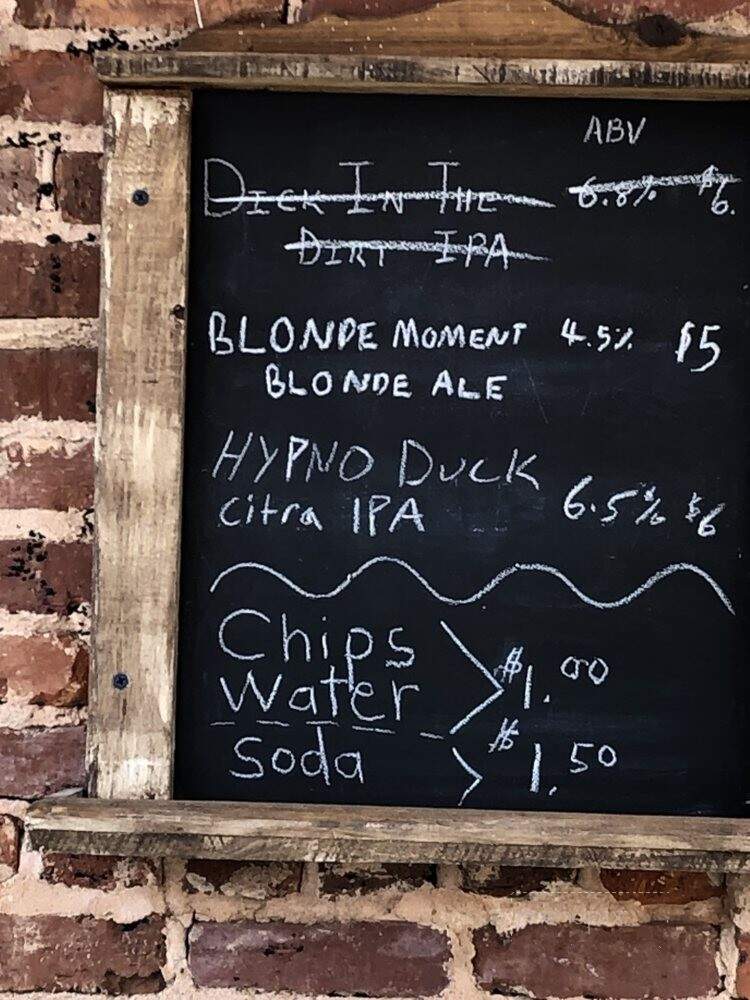 ABV
DICK IN THE 6.8% $6.
DIRT IPA
BLONDE MOMENT 4.5% $5
BLONDE ALE
HYPNO DUCK
Citra IPA 6.5% $6
Chips
Water $1.00
Soda $1.50